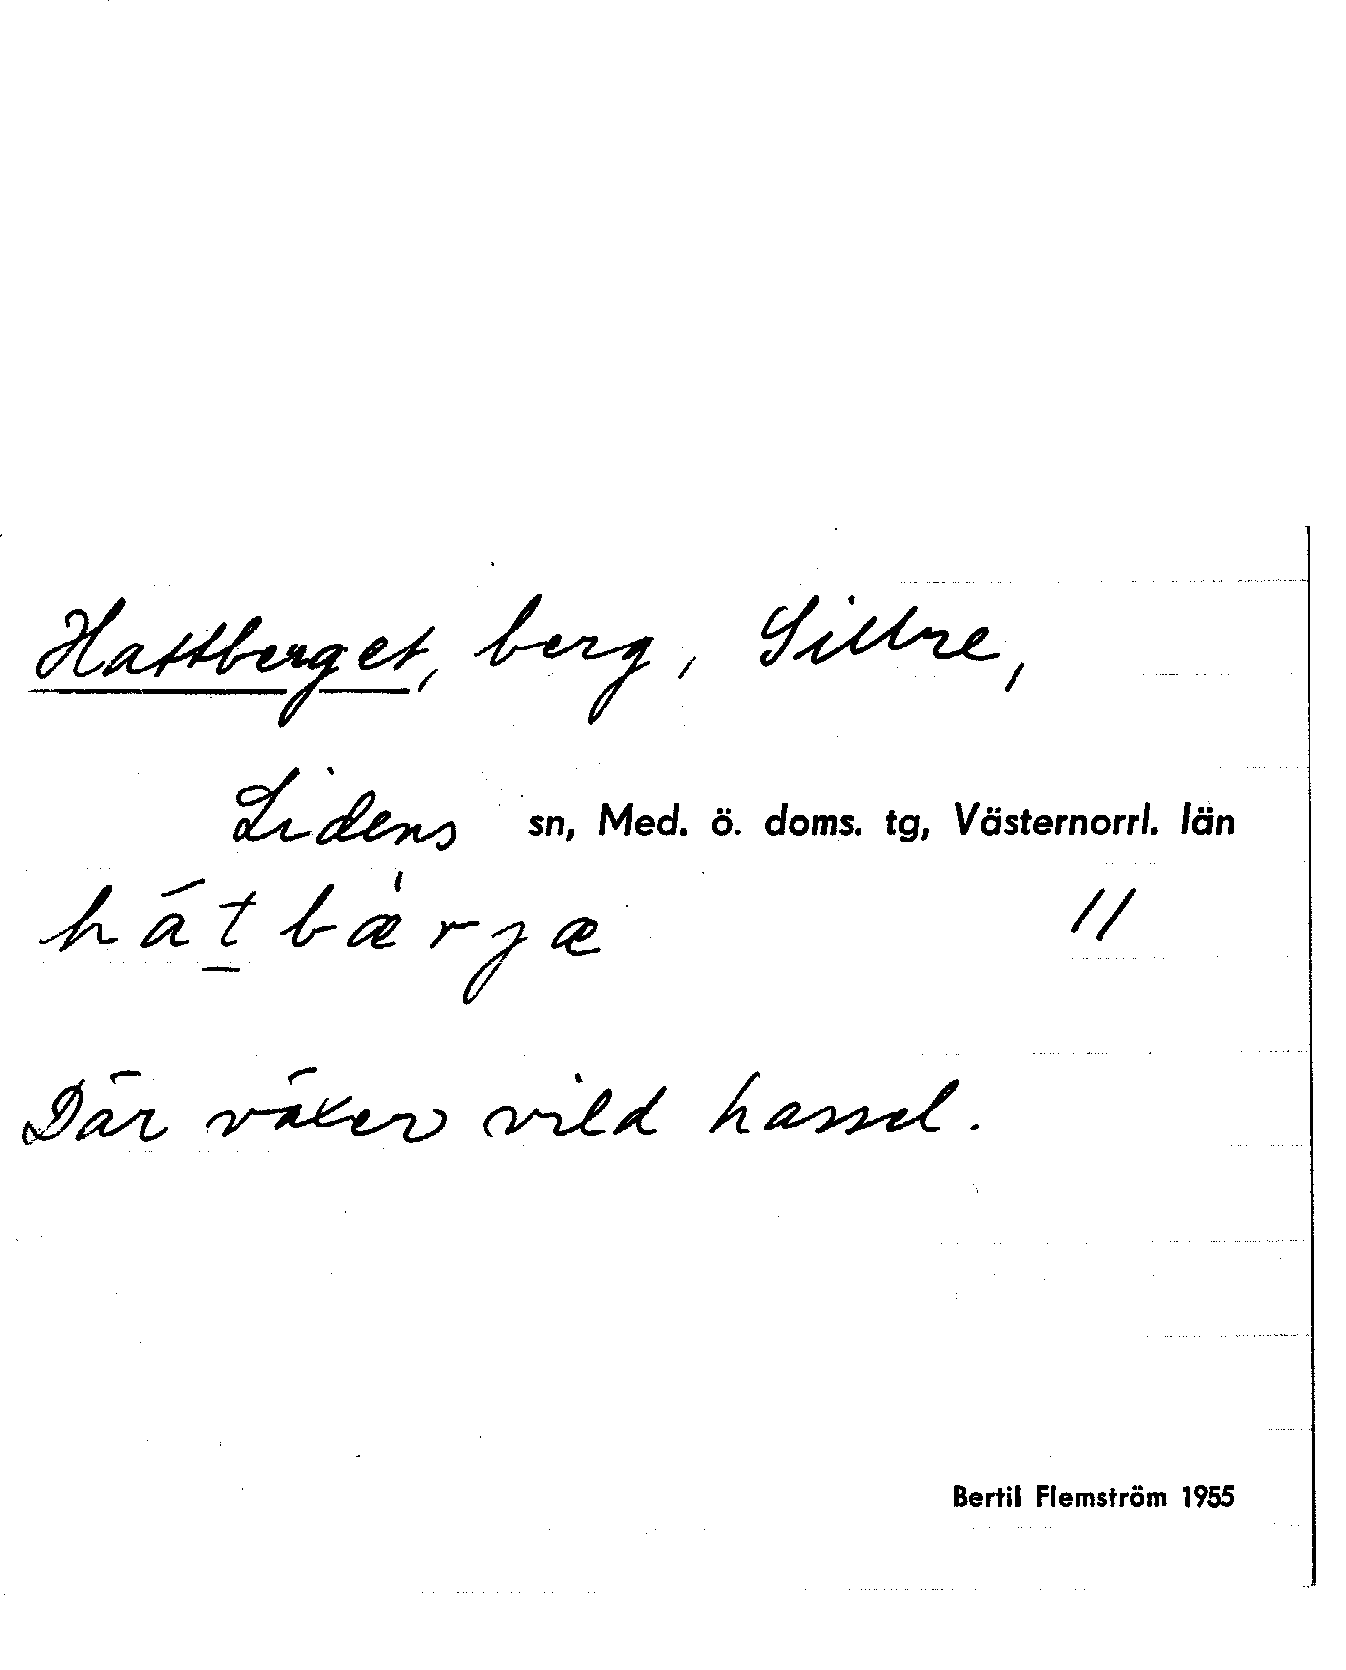 Hattberget, berg, Sillre,
Lidens sn, Med. ö. doms. tg, Västernorrl. län
hát̲bæ̀rjæ 11
Där växer vild hassel.
Bertil Flemström 1955